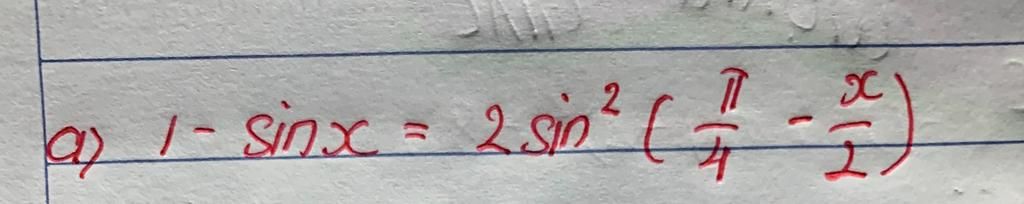 a) 1 - sinx = 2 sin² ( π/4 - x/2 )